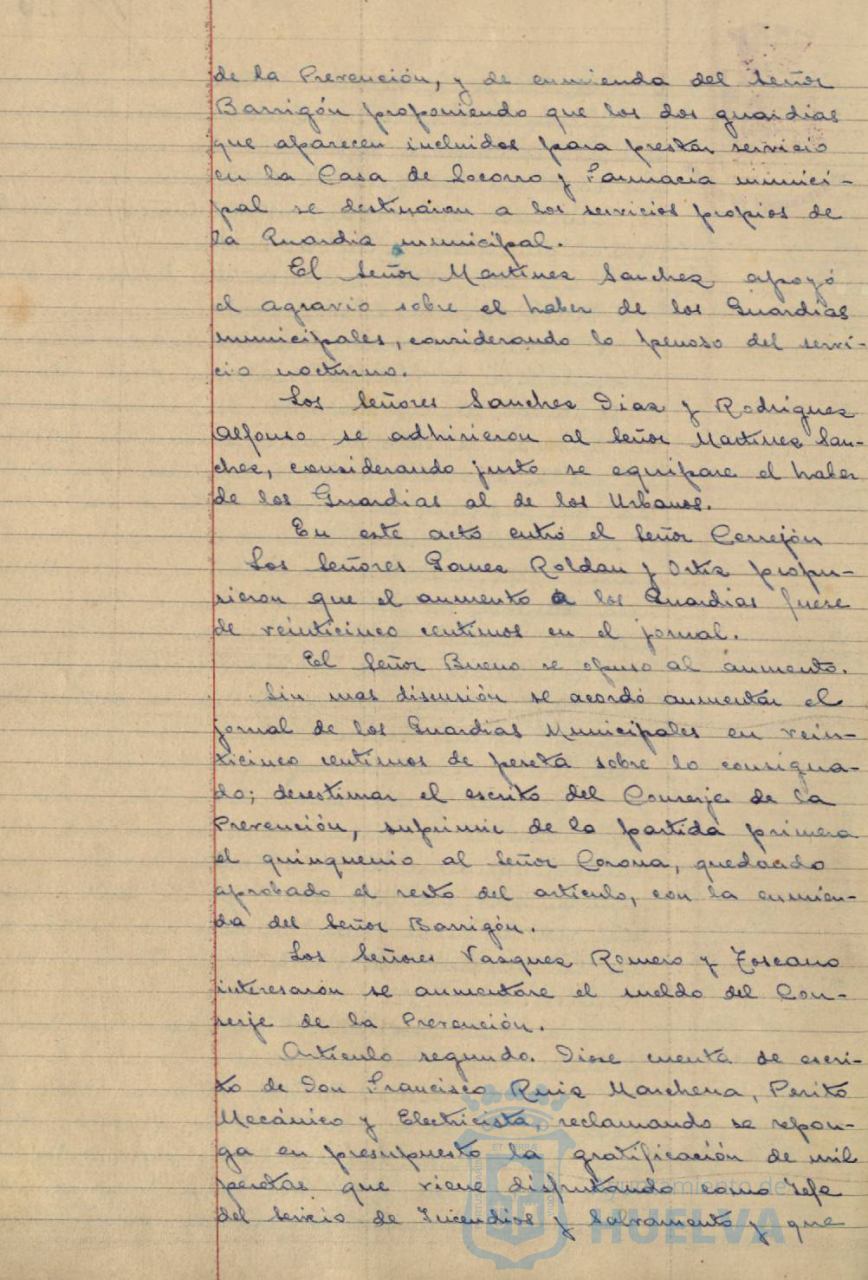 de la Prevención, y de enmienda del Señor
Barrigón proponiendo que los dos guardias
que aparecen incluidos para prestar servicio
en la Casa de Socorro y Farmacia munici-
pal se destinaran a los servicios propios de
la Guardia municipal.
El Señor Martinez Sanchez apoyó
el agravio sobre el haber de los Guardias
municipales, considerando lo penoso del servi-
cio nocturno.
Los Señores Sanchez Diaz y Rodriguez
Alfonso se adhirieron al Señor Martinez San-
chez, considerando justo se equipare el haber
de los Guardias al de los Urbanos.
En este acto entró el Señor Cerrejón
Los Señores Gamez Roldan y Ortiz propu-
sieron que el aumento a los Guardias fuese
de veinticinco centimos en el jornal.
El Señor Bueno se opuso al aumento.
Sin mas discusión se acordó aumentar el
jornal de los Guardias Municipales en vein-
ticinco centimos de peseta sobre lo consigna-
do; desestimar el escrito del Conserje de la
Prevención, suprimir de la partida primera
el quinquenio al Señor Corona, quedando
aprobado el resto del artículo, con la enmien-
da del Señor Barrigón.
Los Señores Vazquez Romero y Toscano
interesaron se aumentare el sueldo del Con-
serje de la Prevención.
Artículo segundo. Diose cuenta de escri-
to de Don Francisco Ruiz Marchena, Perito
Mecánico y Electricista, reclamando se repon-
ga en presupuesto la gratificación de mil
pesetas que viene disfrutando como Jefe
del Servicio de Incendios y Salvamento y que
Ayuntamiento de
HUELVA